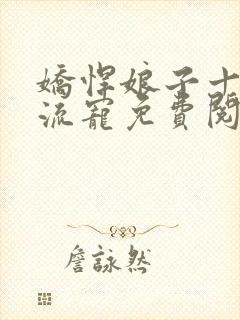 嬌悍娘子十
流寵免費閱
詹詠然